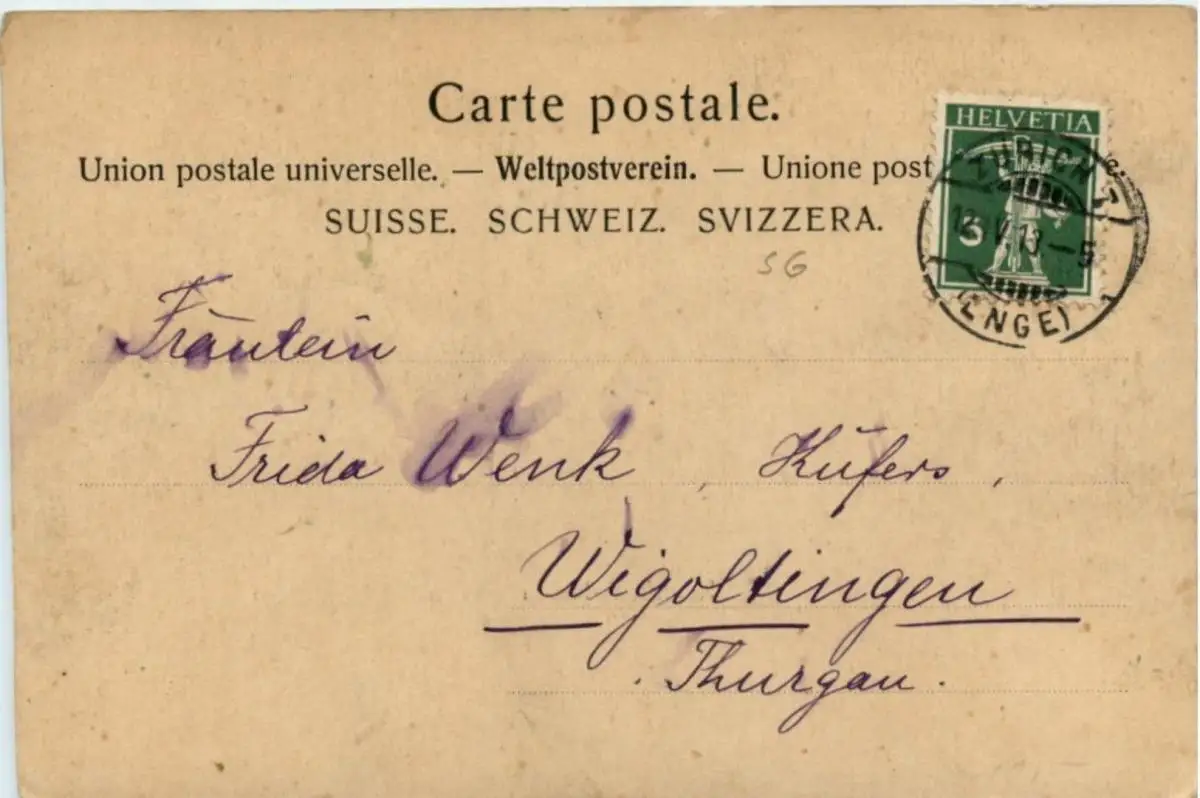 Carte postale.
Union postale universelle. — Weltpostverein. — Unione post
SUISSE. SCHWEIZ. SVIZZERA.
HELVETIA
5
ZÜRICH 1
12. IV. 13 — 5
(ENGE)
SG
Fräulein
Frida Wenk, Küfers,
Wigoltingen
Thurgau.